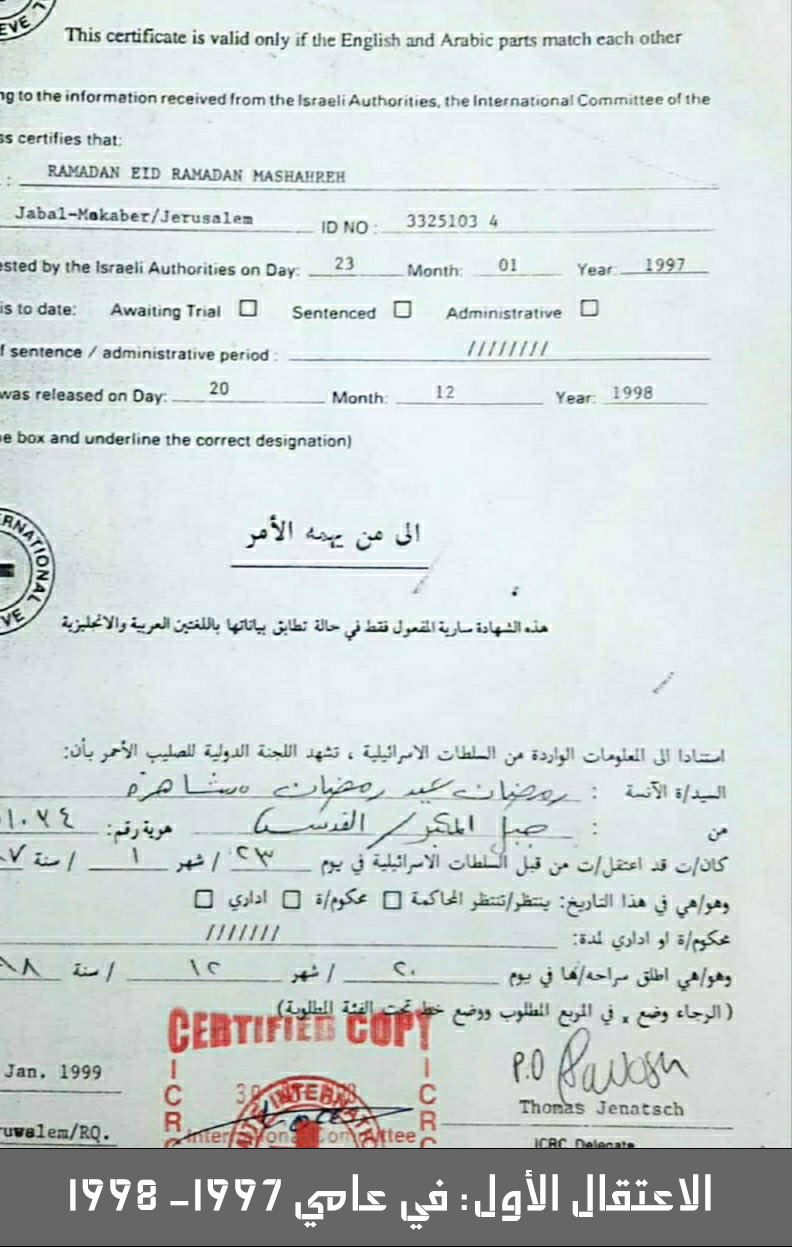 EVE
This certificate is valid only if the English and Arabic parts match each other
ng to the information received from the Israeli Authorities, the International Committee of the
ss certifies that:
: RAMADAN EID RAMADAN MASHAHREH
Jabal-Mokaber/Jerusalem ID NO : 3325103 4
ested by the Israeli Authorities on Day: 23 Month: 01 Year: 1997
is to date: Awaiting Trial ☐ Sentenced ☐ Administrative ☐
f sentence / administrative period : ////////
was released on Day: 20 Month: 12 Year: 1998
e box and underline the correct designation)
ERNATIONAL
VE
الى من يهمه الأمر
هذه الشهادة سارية المفعول فقط في حالة تطابق بياناتها باللغتين العربية والانجليزية
استنادا الى المعلومات الواردة من السلطات الاسرائيلية ، تشهد اللجنة الدولية للصليب الأحمر بأن:
السيد/ة الآنسة : رمضان عيد رمضان مشاهرة
من : جبل المكبر / القدس هوية رقم:
كان/ت قد اعتقل/ت من قبل السلطات الاسرائيلية في يوم ٢٣ / شهر ١ / سنة ٧
وهو/هي في هذا التاريخ: ينتظر/تنتظر المحاكمة ☐ محكوم/ة ☐ اداري ☐
محكوم/ة او اداري لمدة: ///////
وهو/هي اطلق سراحه/ها في يوم ٢٠ / شهر ١٢ / سنة ٩٨
( الرجاء وضع x في المربع المطلوب ووضع خط تحت الفئة المطلوبة)
CERTIFIED COPY
ICRC
ICRC
INTERNAT
International Committee
Jan. 1999
P.O
Thomas Jenatsch
ruwalem/RQ.
ICRC Delegate
الاعتقال الأول: في عامي ١٩٩٧- ١٩٩٨